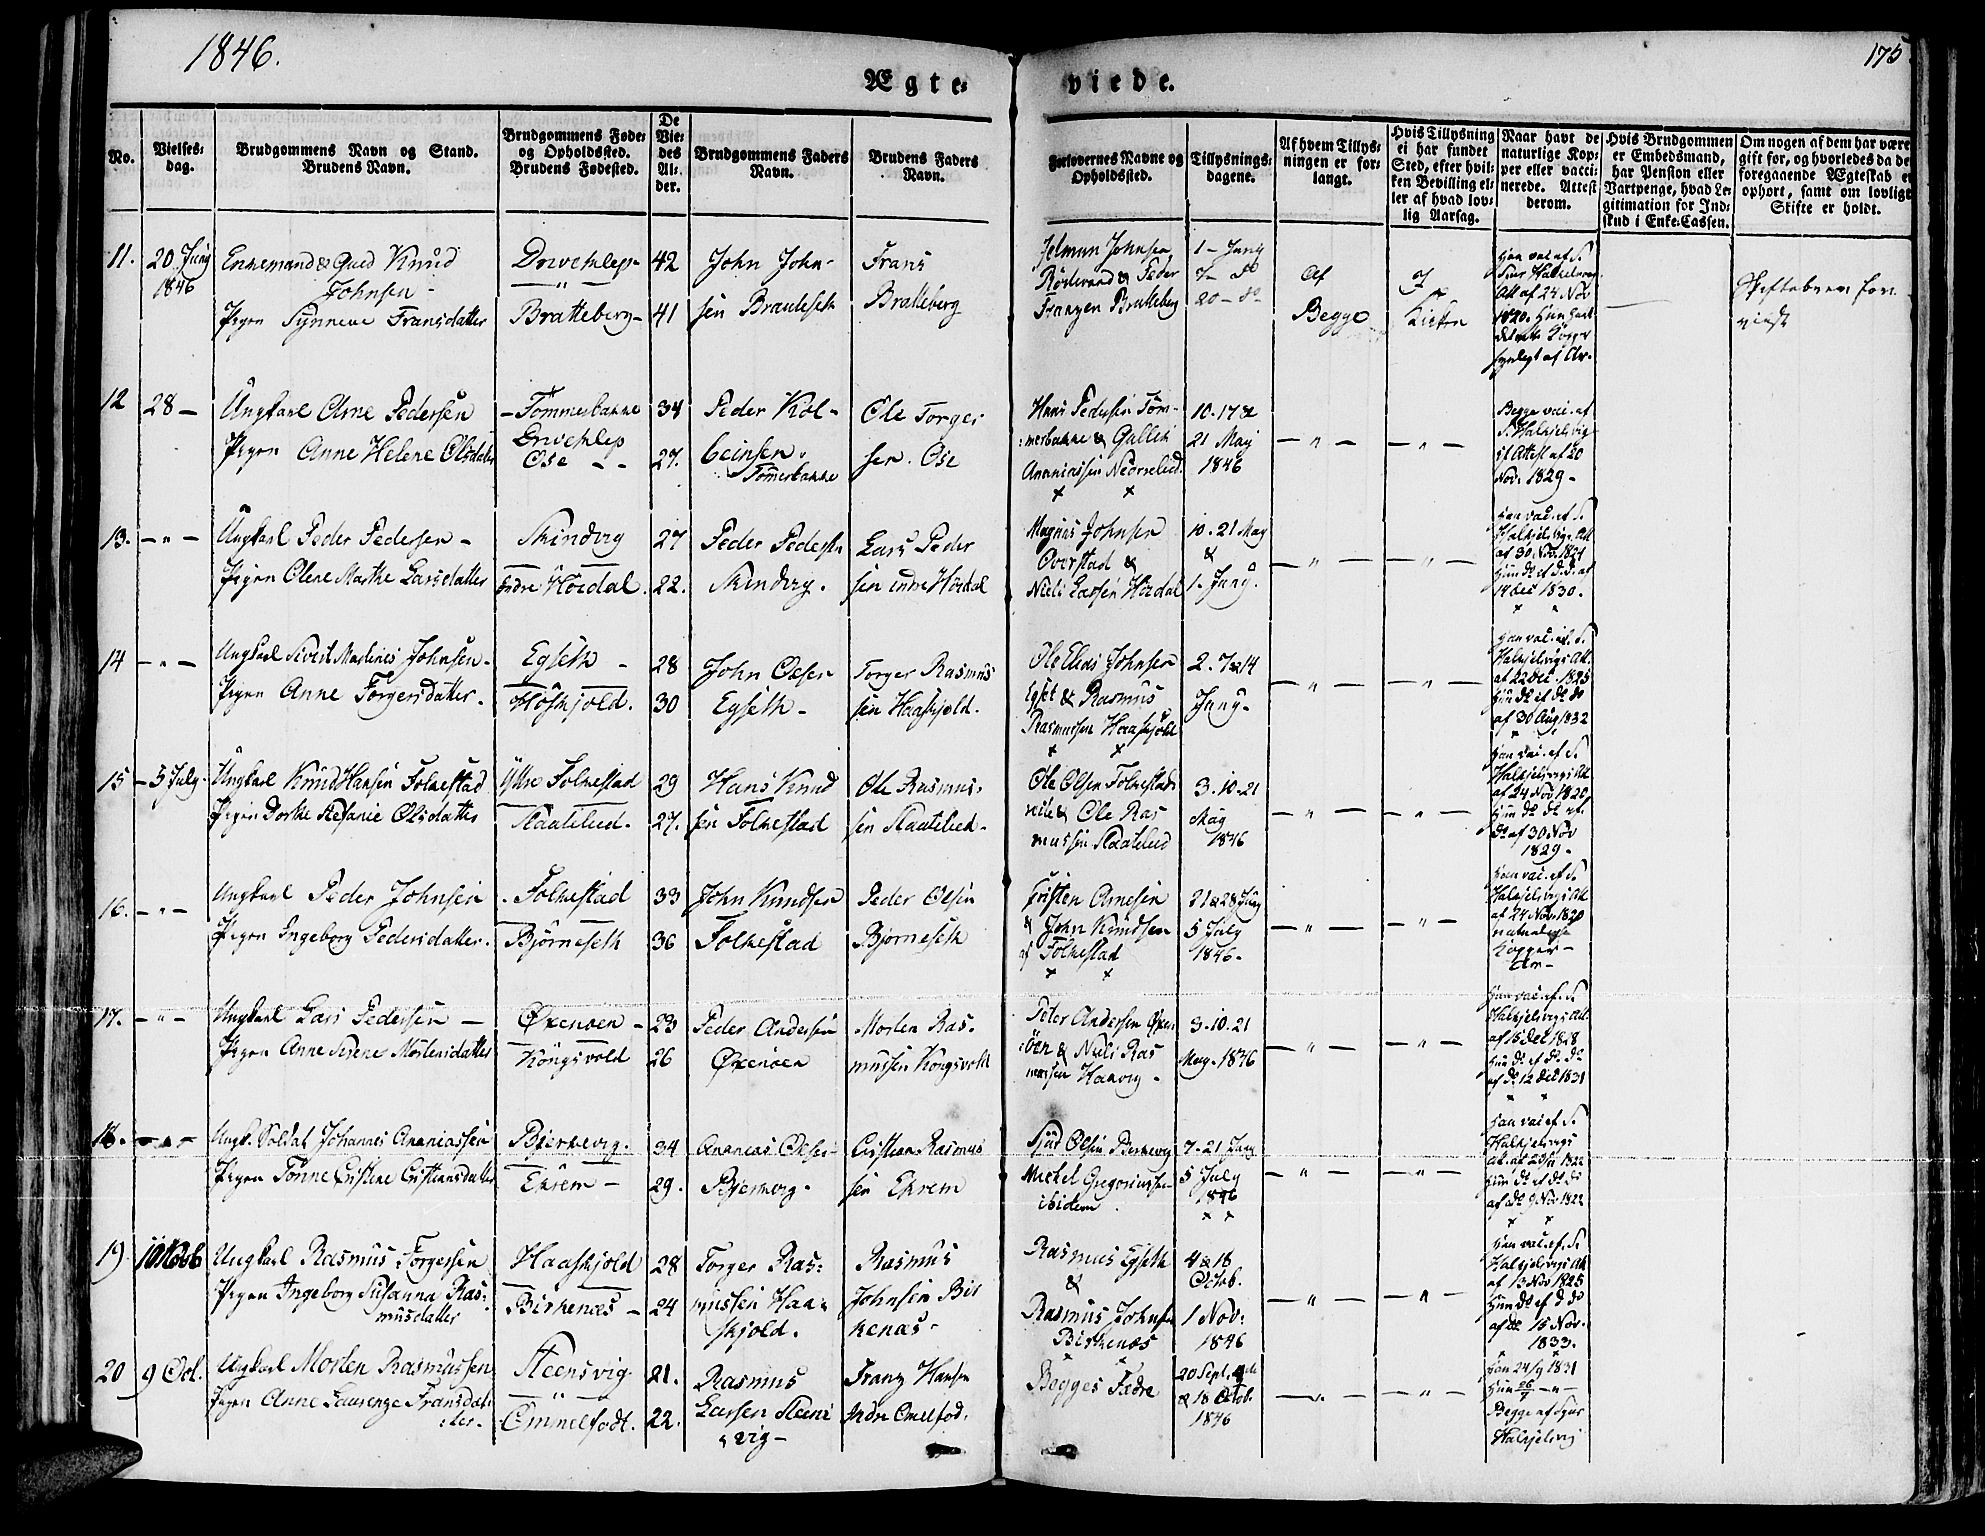 1846.
175
Ægte-
viede.
No.
Vielses-
dag.
Brudgommens Navn og Stand.
Brudens Navn.
Brudgommens Føde-
og Opholdssted.
Brudens Fødested.
De
Vie-
des
Al-
der.
Brudgommens Faders
Navn.
Brudens Faders
Navn.
Forlovernes Navne og
Opholdssted.
Tillysnings-
dagene.
Af hvem Tillys-
ningen er for-
langt.
Hvis Tillysning
ei har fundet
Sted, efter hvil-
ken Bevilling el-
ler af hvad lov-
lig Aarsag.
Naar havt de
naturlige Kop-
per eller vacci-
nerede. Attest
derom.
Hvis Brudgommen
er Embedsmand,
har Pension eller
Vartpenge, hvad Le-
gitimation for Ind-
skud i Enke-Cassen.
Om nogen af dem har være
gift før, og hvorledes da de
foregaaende Ægteskab e
ophørt, samt om lovligt
Skifte er holdt.
11.
20 Juny
1846
Enkemand & Gaed Knud
Johnsen -
Pigen Synneve Fransdatter
Bratteberg -
42
41
John John-
sen
Frans
Bratteberg
Jelmun Johnsen
& Peder
Fransen Bratteberg
1 - Juny
7 - do
20 - do
Af
Begge
I
Kirken
Han vac. af S.
Att af 24 Nov
1820. Hun havt
12
28 -
Ungkarl Arne Pedersen
Pigen Anne Helene Olsdatter
- Tømmerbakke
Ose - -
34
27.
Peder Kol-
beinsen.
Tømerbakke
Ole Torger
sen. Ose
Hans Pedersen Tøm-
merbakke & Gullek
Ananiassen Nedrelied.
10. 17 &
21 May
1846
- " -
- " -
Begge vac. af
S. Halkjelsvig
Attest af 20
Nov. 1829 -
13.
- " -
Ungkarl Peder Pedersen -
Pigen Olene Marthe Larsdatter
Skindvig
Indre Hovdal.
27
22.
Peder Pedersen
Skindvig.
Lars Peder
sen indre Hovdal
Magnus Johnsen
Ovrstad &
Niels Larsen Hovdal
10. 21 May
&
1 - Juny.
- " -
- " -
Han vac. af S.
Halkjelsvigs Att
af 30 Nov. 1821
Hun do af d. d. af
14 Dec 1830.
14
- " -
Ungkarl Sivert Martines Johnsen -
Pigen Anne Torgersdatter.
Egseth -
Haaskjold.
28
30
John Olsen
Egseth -
Torger Rasmus
sen Haaskjold.
Ole Elias Johnsen
Egset & Rasmus
Rasmussen Haaskjold
2. 7 & 14
Juny -
- " -
- " -
Han vac. af S.
Halkjelsvigs Att.
af 22 Dec. 1825
Hun do af do do
af 30 Aug 1832
15
- 5 July.
Ungkarl Knud Hansen Folkestad
Pigen Dorthe Stefanie Olsdatter
Ytre Folkestad
Slaatelied.
29
27.
Hans Knud
sen Folkestad
Ole Rasmus-
sen Slaatelied -
Ole Olsen Folkestad
& Ole Ras
mussen Slaatelied
3. 10. 21
May
1846
- " -
- " -
Han vac. af S.
Halkjelsvigs Att
af 24 Nov 1820
Hun do do af
do af 30 Nov
1829 -
16.
- " -
Ungkarl Peder Johnsen
Pigen Ingeborg Pedersdatter.
- Folkestad
Bjørneseth
33
36
John Knudsen
Folkestad
Peder Olsen
Bjørneseth
Cristen Arnesen
& John Knudsen
af Folkestad
21 & 28 Juny
5 July
1846 -
- " -
- " -
Han vac. af S.
Halkjelsvigs Att
af 24 Nov. 1820
naturlige
Kopper -
Ar -
17.
- " -
Ungkarl Lars Pedersen -
Pigen Anne Serene Mortensdatter
Øxenøen -
Kongsvold
23
26
Peder Andersen
Øxenøen
Morten Ras-
mussen Kongsvold
Peter Andersen Øxen-
øen & Niels Ras
mussen Haavig -
3. 10. 21
May. 1846
- " -
- " -
Han vac. af S.
Halkjelsvigs Att
af 15 Dec 1818
Hun do af do do
af do 12 Dec 1831
18.
- " -
Ungk. Soldat Johannes Ananiassen
Pigen Tønne Cristine Cristiansdatter
Bjerkevig.
Ekrem -
34
29.
Ananias Olsen
Bjerkevig -
Cristian Rasmus
sen Ekrem
Sjur Olsen Bierkevig
Mickel Gregoriussen
ibidem
7. 21 Juny
5 July
1846
- " -
- " -
Han vac. af S.
Halkjelsvigs
Hun do af do do
af do 9 Nov 1822
19
Ungkarl Rasmus Torgersen
Pigen Ingeborg Susanna Ras-
musdatter
Haaskjold
Birkenæs -
28
24
Torger Ras-
mussen Haa-
skjold.
Rasmus
Johnsen Bir
kenæs -
Rasmus Egseth
&
Rasmus Johnsen
Birkenæs
4 & 18
Octob.
1 Nov.
1846
- " -
- " -
Han vac. af S.
Halkjelsvigs Att
af 13 Nov 1825
Hun do af d do
af do 15 Nov.
1833.
20
9 Oct.
Ungkarl Morten Rasmussen
Pigen Anne Laurenze Fransdat-
ter -
Steensvig
- " -
Ommelfodt.
21.
22.
Rasmus
Larsen Steens
vig -
Franz Hansen
Indre Omelfod.
Begges Fædre
20 Sept.
& 18 Octob.
1846
- " -
- " -
Han 24/9 1831
Begge af Sgnr
Halkjelsvig